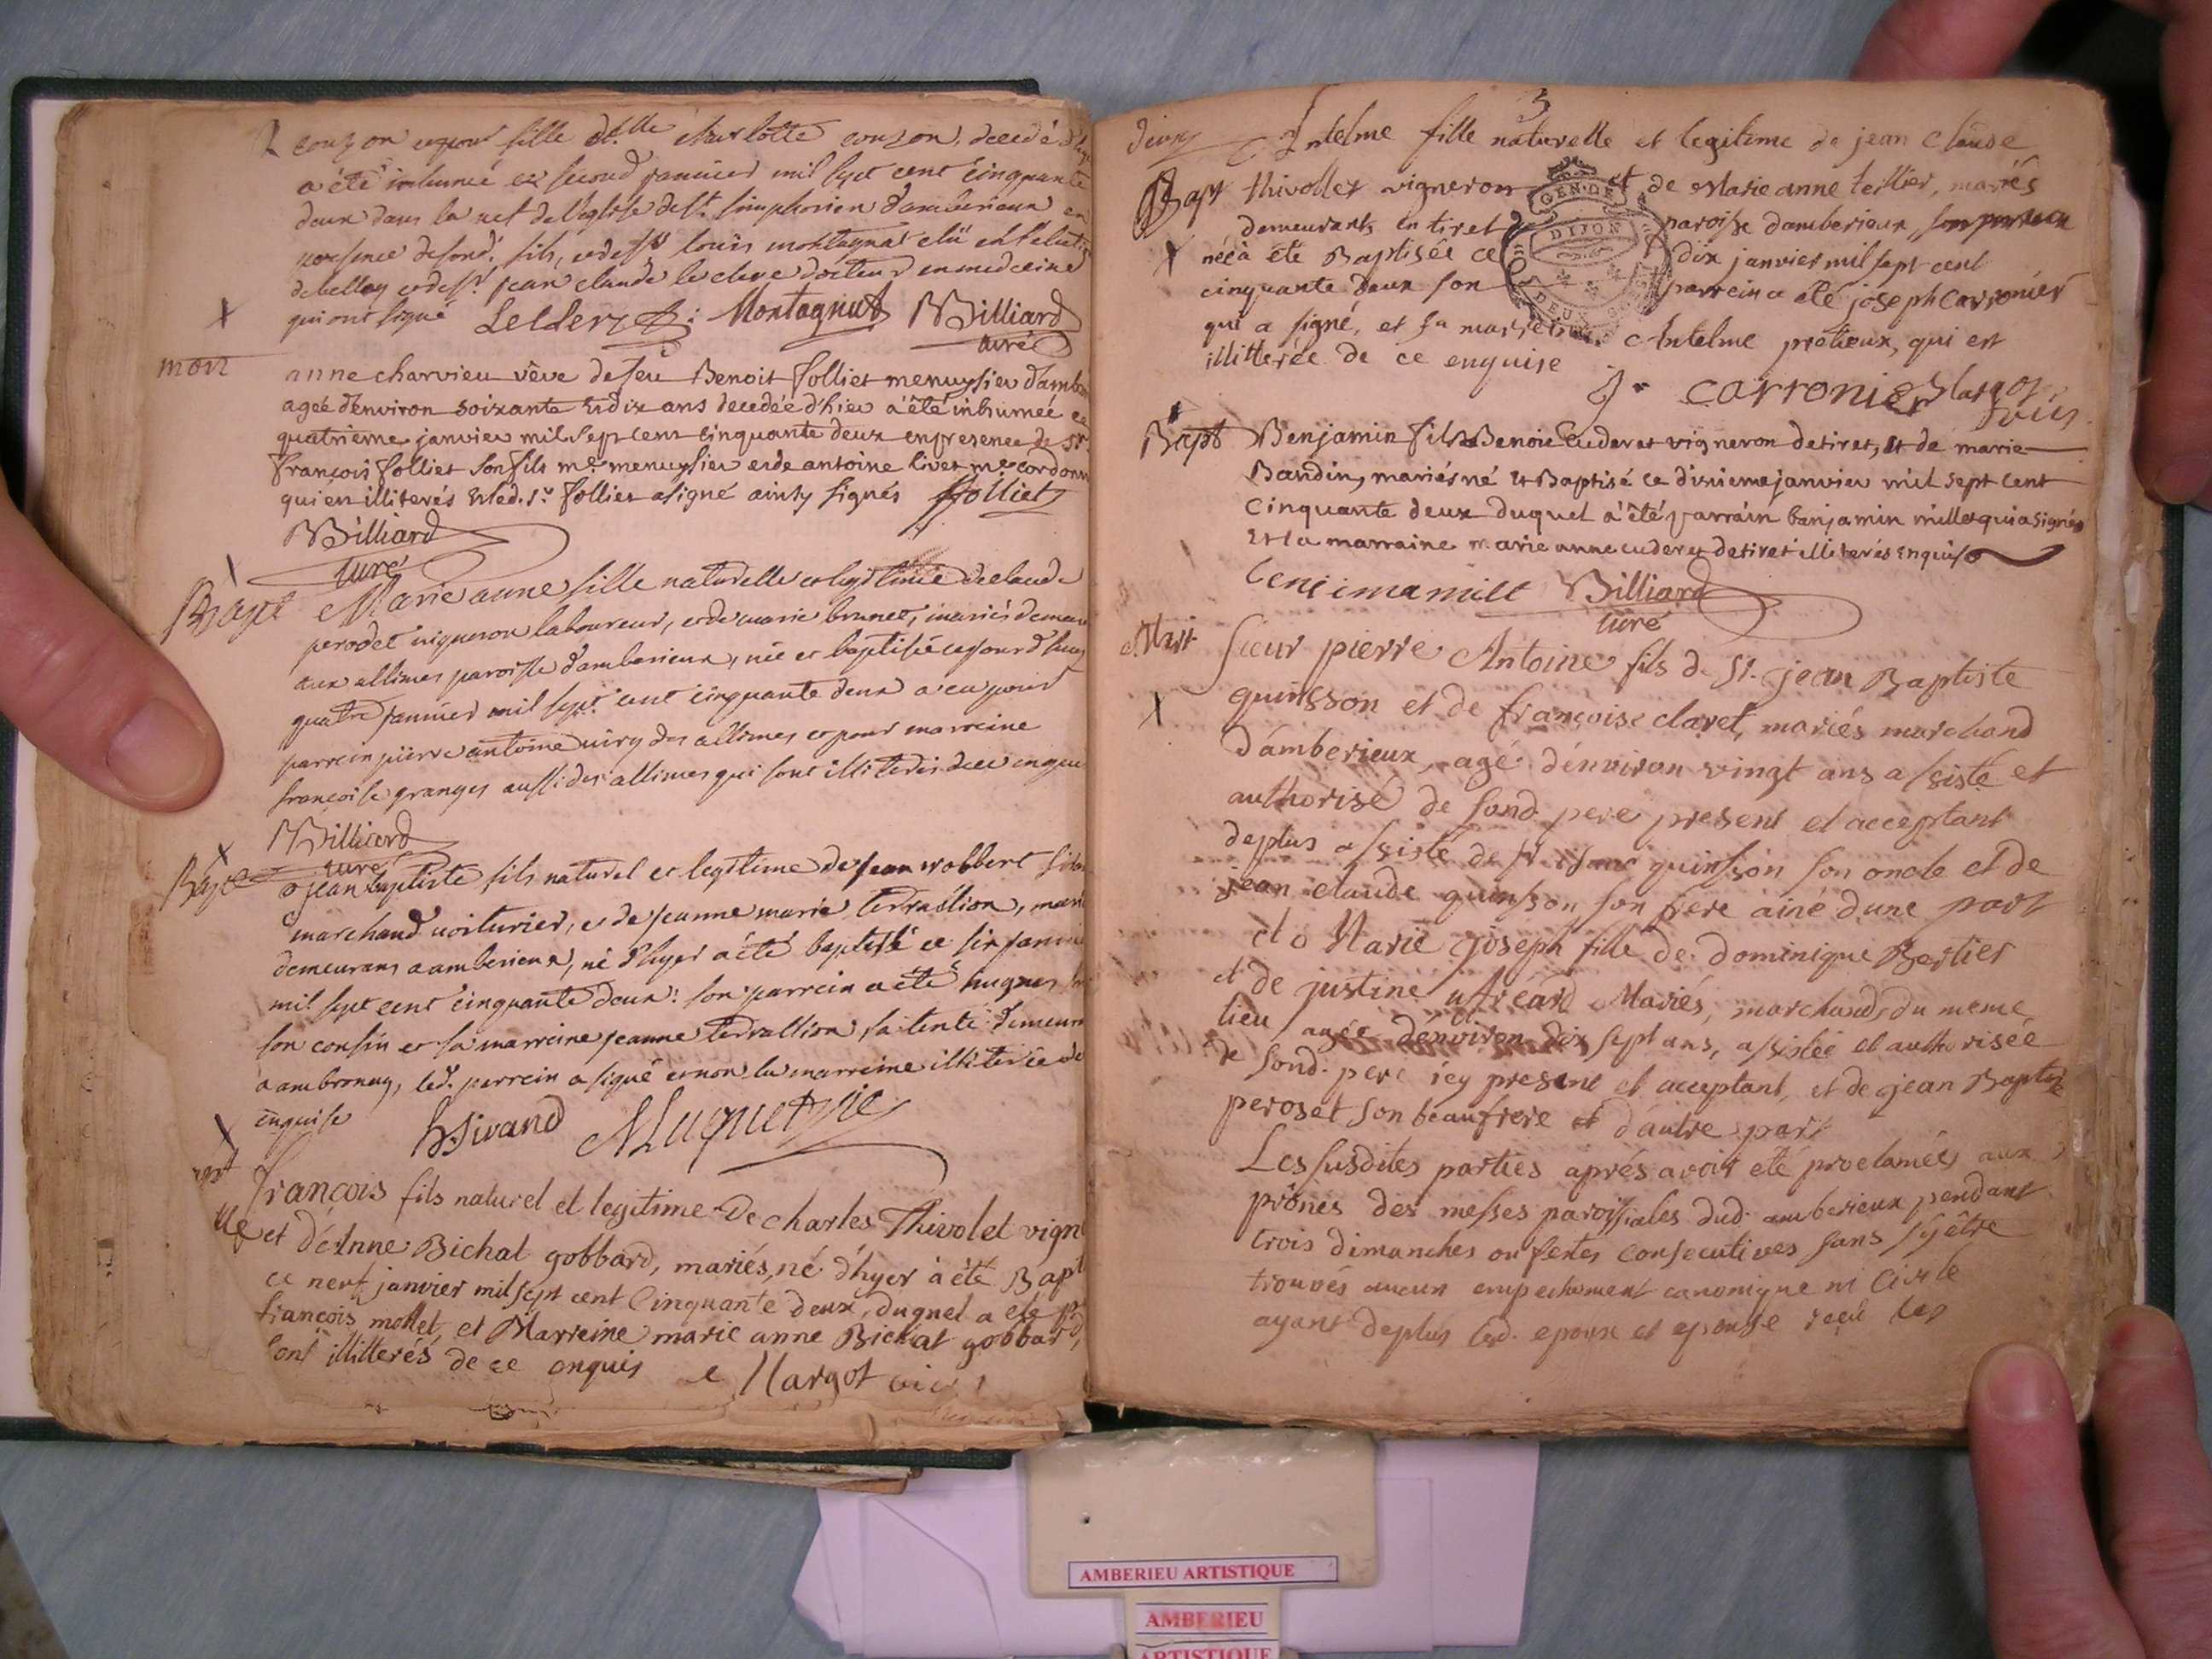 couzon
a été inhumée ce second janvier mil sept cent cinquante
deux dans la nef de l'eglise de st. simphorien d'amberieux en
presence de sond. fils, et de sr louis montagnat elû en l'election
debelley et de sr. jean claude leclerc docteur en medecine
qui ont signé Leclerc Montagnat Billiard
curé
mort anne charvieu vêve de feu Benoit folliet menuysier d'amb
ageé d'environ soixante et dix ans decedée d'hier a été inhumeé ce
quatrieme janvier mil sept cent cinquante deux en presence de sr.
françois folliet son fils me. menuysier et de antoine livet me cordonn
qui en illiterés et led. sr. folliet a signé ainsy signés ffolliet
Billiard
curé
Bapt Marie anne fille naturelle et legitime de claude
perodet vigneron laboureur, et de marie brunet, mariés demeu
aux allimes paroisse d'amberieux, née et baptisée cejourd'huy
quatre janvier mil sept cent cinquante deux a eu pour
parrein pierre antoine viry des allimes et pour marreine
françoise granger aussi des allimes qui sont illiterés de ce enquis
Billiard
curé
Bapt jean baptiste fils naturel et legitime de jean robbert
marchand voiturier, et de jeanne marie terrallion, mari
demeurans a amberieux, né d'hyer a été baptisé ce six janvie
mil sept cent cinquante deux: son parrein a été hugues
son cousin et sa marreine jeanne terrallion, sa tente demeur
a ambronay, led. parrein a signé et non la marreine illiterée de
enquise
h. Sivand Huguet
françois fils naturel et legitime de charles Thivolet vign
et d'Anne Bichat gobbard, mariés, né d'hyer à été Bapt
ce neuf janvier mil sept cent Cinquante deux, duquel a ete
françois mollet, et Marreine marie anne Bichat gobbard,
sont illitterés de ce enquis Margot
3
Antelme fille naturelle et legitime de jean claude
Bapt thivollet vigneron et de Marie anne tellier, mariés
GEN. DE
DIJON
DEUX
demeurants en tiret paroisse d'amberieux,
née à été Baptisée ce dix janvier mil sept cent
cinquante deux son parrein a été joseph carronier
qui a signé, et sa marreine Antelme prétieux, qui est
illitterée de ce enquise
J. carronier Margot
Bapt Benjamin fils Benoit cuderet vigneron de tiret, et de marie
Baudin, mariés né et Baptisé ce dixieme janvier mil sept cent
cinquante deux duquel a été parrain banjamin millet qui a signé
et la marraine marie anne cuderet de tiret illiterés enquis
Billiard
curé
Sieur pierre Antoine fils de sr. jean Baptiste
quinsson et de françoise claret, mariés marchand
d'amberieux, agé d'environ vingt ans assisté et
authorisé de sond. pere present et acceptant
deplus assisté de sr. quinsson son oncle et de
jean claude quinsson son frere ainé d'une part
et Marie joseph fille de dominique Berlier
et de justine Mariés, marchands du meme
lieu, agée d'environ dix sept ans, assistée et authorisée
de sond. pere icy present et acceptant, et de jean Baptiste
peroset son beaufrere d'autre part
Les susdites parties aprés avoir eté proclamées aux
prônes des messes paroissiales dud. amberieux pendant
trois dimanches ou festes consecutives sans s'y être
trouvés aucun empechement canonique ni Civile
ayant deplus led. epoux et epouse reçu les
AMBERIEU ARTISTIQUE
AMBERIEU
ARTISTIQUE